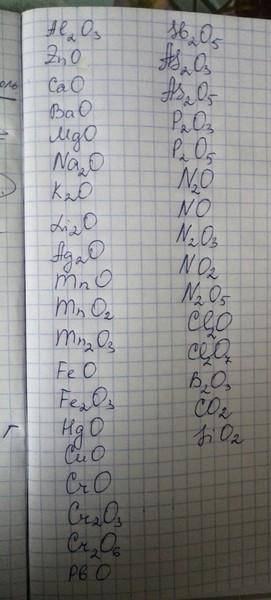 Al₂O₃
ZnO
CaO
BaO
MgO
Na₂O
K₂O
Li₂O
Ag₂O
MnO
MnO₂
Mn₂O₃
FeO
Fe₂O₃
HgO
CuO
CrO
Cr₂O₃
Cr₂O₆
PBO
Sb₂O₅
As₂O₃
As₂O₅
P₂O₃
P₂O₅
N₂O
NO
N₂O₃
NO₂
N₂O₅
Cl₂O
Cl₂O₇
B₂O₃
CO₂
SiO₂